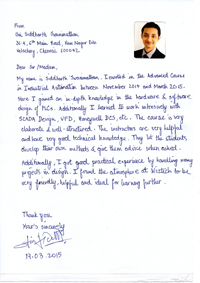 From
Sai Siddharth Swaminathan
6th Main Road, Ram Nagar
Velachery, Chennai 600042
Dear Sir/Madam,
My name is Siddharth Swaminathan. I enrolled in the Advanced Course
in Industrial Automation between November 2014 and March 2015.
Here I gained an in-depth knowledge in the hardware & software
design of PLCs. Additionally I learned to work intensively with
SCADA Design, VFD, Honeywell DCS, etc. The course is very
elaborate & well-structured. The instructors are very helpful
and have very good technical knowledge. They let the students
develop their own methods & give them advice when asked.
Additionally, I got good practical experience by handling many
projects in design. I found the atmosphere at to be
very friendly, helpful and ideal for learning further.
Thank you,
Your's sincerely
19.03.2015